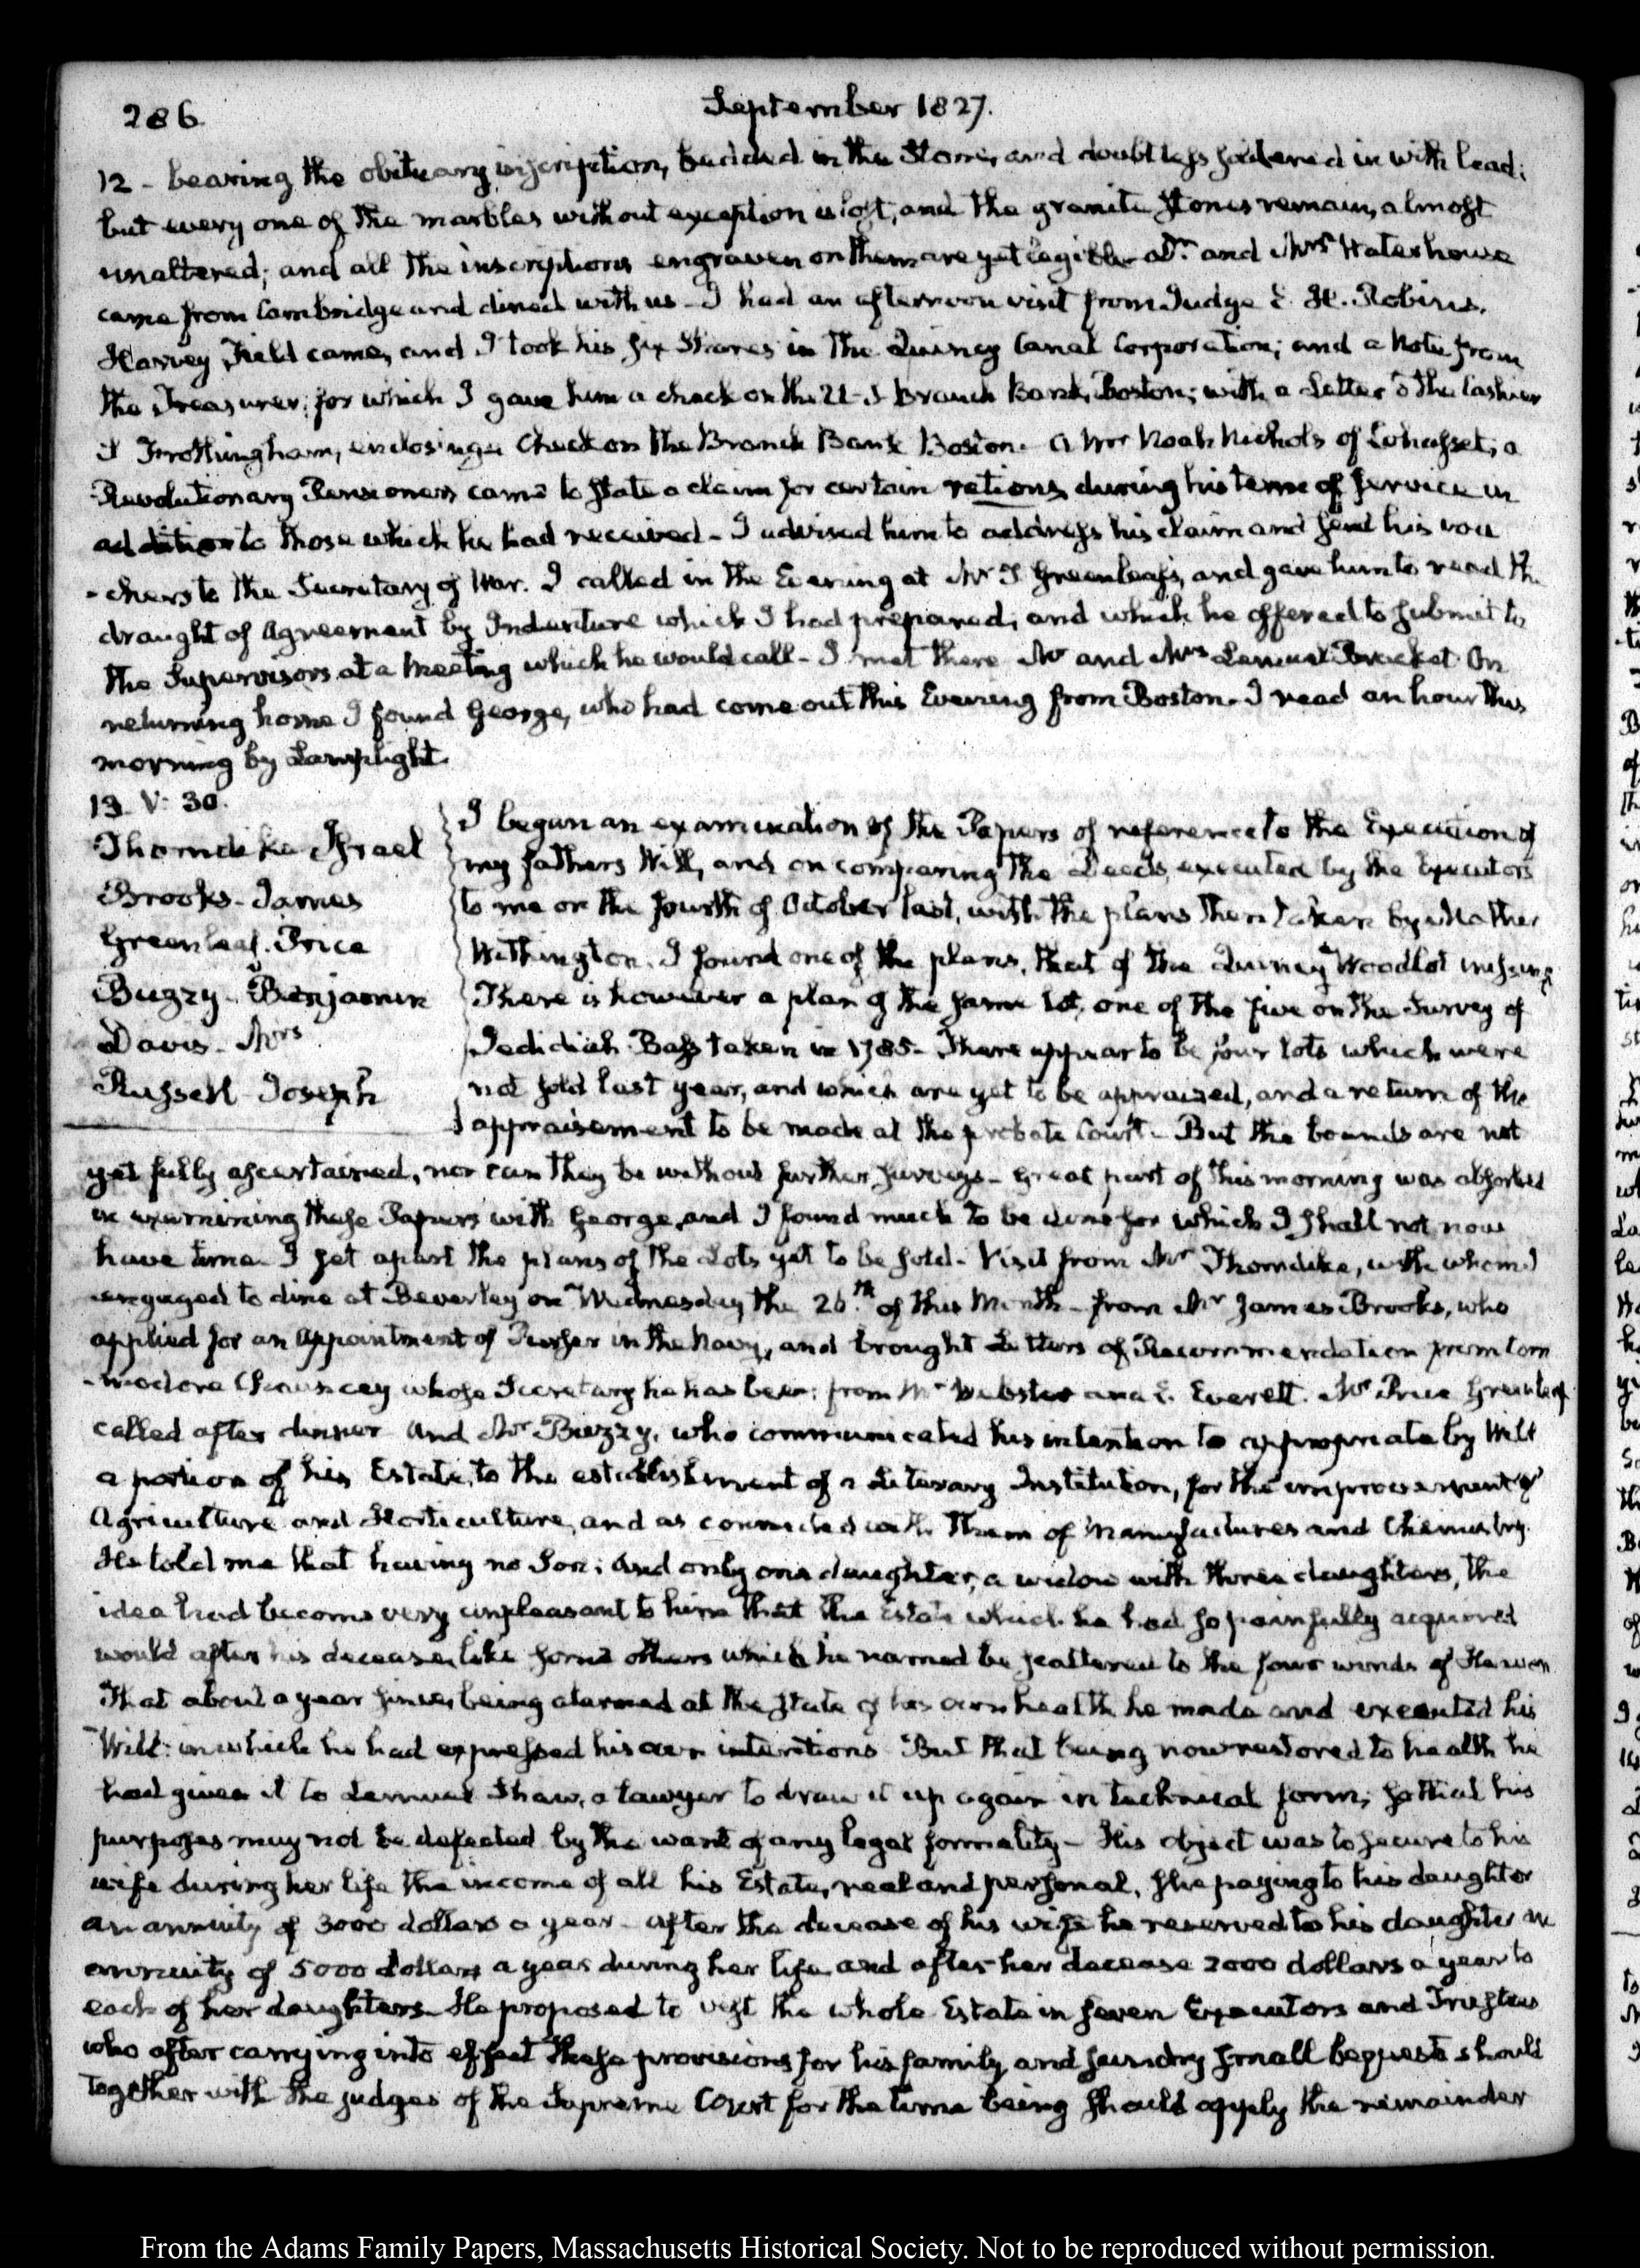 286
September 1827.
12 - bearing the obituary inscription, bedded in the Stone, and doubtless soldered in with lead:
but every one of the marbles without exception is lost, and the granite stones remain, almost
unaltered; and all the inscriptions engraven on them are yet legible. Dr. and Mrs Waterhouse
came from Cambridge and dined with us - I had an afternoon visit from Judge E. H. Robbins.
Harvey Field came, and I took his six Shares in the Quincy Canal Corporation; and a Note from
the Treasurer; for which I gave him a check on the U.S. Branch Bank, Boston; with a Letter to the Cashier
S Frothingham, enclosing a Check on the Branch Bank Boston. A Mr Noah Nichols of Cohasset, a
Revolutionary Pensioner came to state a claim for certain rations during his term of service in
addition to those which he had received - I advised him to address his claim and send his vou
-chers to the Secretary of War. I called in the Evening at Mr T. Greenleaf's, and gave him to read the
draught of Agreement by Indenture which I had prepared, and which he offered to submit to
the Supervisors at a Meeting which he would call - I met there Mr and Mrs Lemuel Bracket On
returning home I found George, who had come out this Evening from Boston. I read an hour this
morning by Lamplight.
13. V: 30.
Thorndike Israel
Brooks - James
Greenleaf. Price
Bugzy - Benjamin
Davis - Mrs
Russell - Joseph
I began an examination of the Papers of reference to the Execution of
my fathers Will, and on comparing the Deeds, executed by the Executors
to me on the fourth of October last, with the plans then taken by Mather
Withington. I found one of the plans, that of the Quincy Woodlot missing
There is however a plan of the same lot, one of the five on the Survey of
Jedidiah Bass taken in 1785 - There appear to be four lots which were
not sold last year, and which are yet to be appraized, and a return of the
appraisement to be made at the probate Court - But the bounds are not
yet fully ascertained, nor can they be without further surveys - Great part of this morning was absorbed
in examining these Papers with George, and I found much to be done for which I shall not now
have time. I set apart the plans of the Lots yet to be sold. Visit from Mr Thorndike, with whom I
engaged to dine at Beverley on Wednesday the 26th. of this Month - from Mr James Brooks, who
applied for an Appointment of Purser in the Navy, and brought Letters of Recommendation from Com
-modore Chauncey whose Secretary he has been; from Mr Webster and E. Everett. Mr Price Greenleaf
called after dinner and Mr Buzzy, who communicated his intention to appropriate by Will
a portion of his Estate, to the establishment of a Literary Institution, for the improvement of
Agriculture and Horticulture, and as connected with them of Manufactures and Chemistry.
He told me that having no Son; and only one daughter, a widow with three daughters, the
idea had become very unpleasant to him that the Estate which he had so painfully acquired
would after his decease, like some others which he named be scattered to the four winds of Heaven
That about a year since, being alarmed at the state of his own health he made and executed his
Will: in which he had expressed his own intentions But that being now restored to health he
had given it to Lemuel Shaw, a Lawyer to draw it up again in technical form; so that his
purposes may not be defeated by the want of any legal formality - His object was to secure to his
wife during her life the income of all his Estate, real and personal, she paying to his daughter
an annuity of 3000 dollars a year - after the decease of his wife he reserved to his daughter an
annuity of 5000 dollars a year during her life and after her decease 2000 dollars a year to
each of her daughters. He proposed to vest the whole Estate in seven Executors and Trustees
who after carrying into effect these provisions for his family and sundry small bequests should
together with the judges of the Supreme Court for the time being should apply the remainder
From the Adams Family Papers, Massachusetts Historical Society. Not to be reproduced without permission.